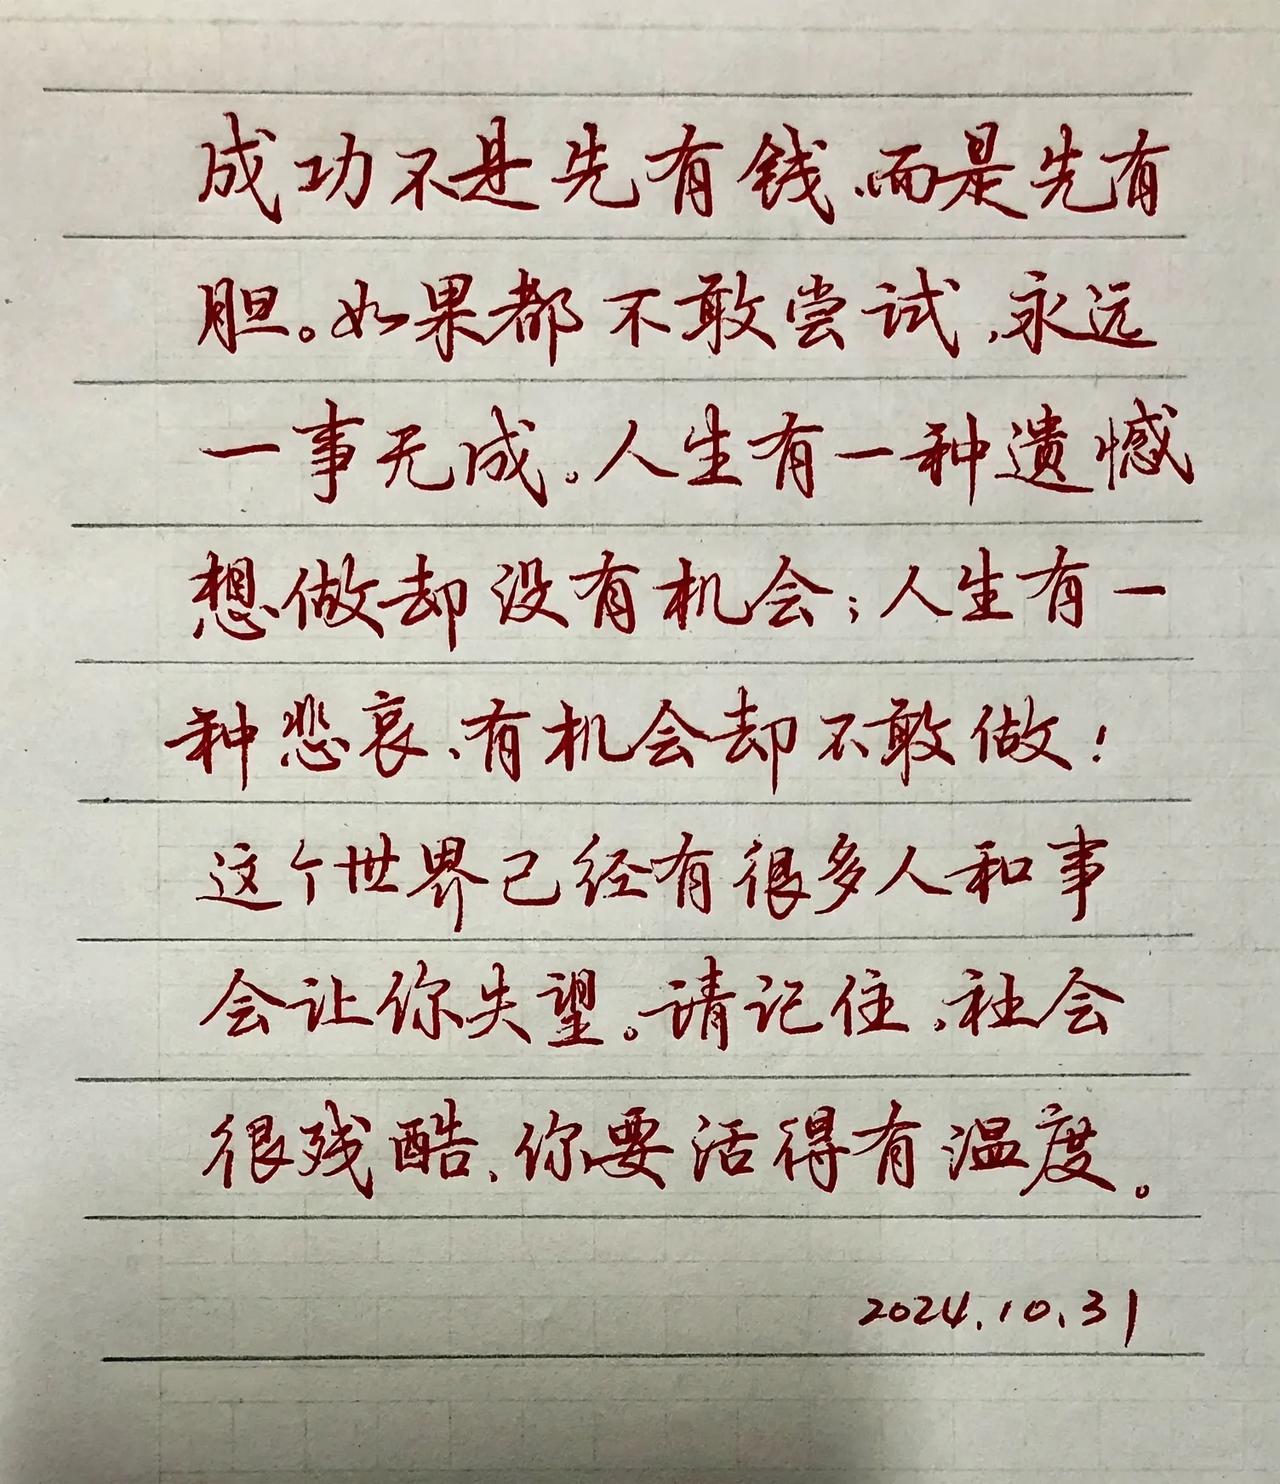 成功不是先有钱、而是先有
胆。如果都不敢尝试,永远
一事无成。人生有一种遗憾
想做却没有机会;人生有一
种悲哀、有机会却不敢做!
这个世界已经有很多人和事
会让你失望。请记住,社会
很残酷、你要活得有温度。
2024.10.31